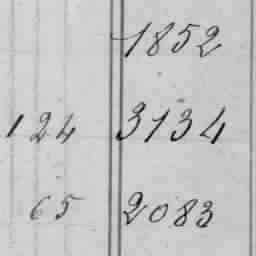 1852
124 3134
65 2083